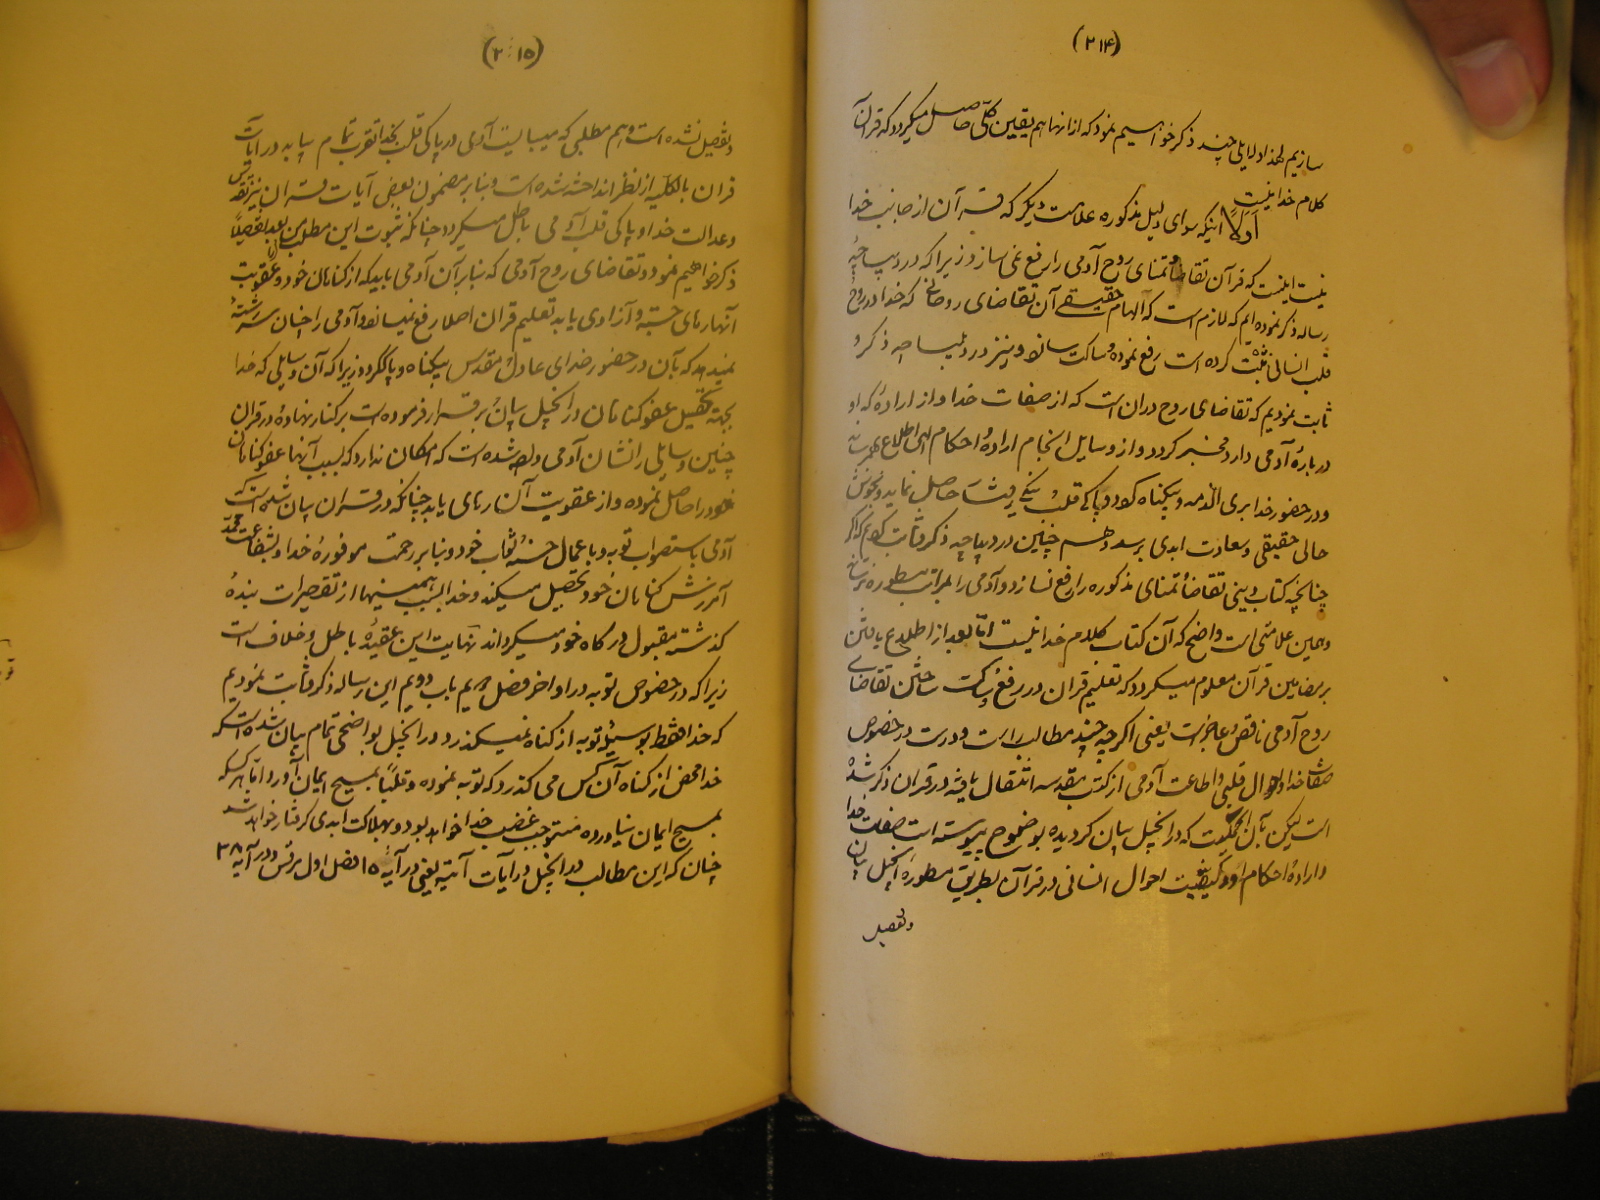 (۲۱۴)
سازیم لهذا دلایلی چند ذکر خواهیم نمود که از انها هم یقین کلی حاصل میگردد که قرآن
کلام خدا نیست
اولا اینکه سوای دلیل مذکوره علامت دیگر که قرآن از جانب خدا
نیست اینست که قرآن تقاضا و تمنای روح آدمی را رفع نمی سازد زیرا که در دیباچهٔ
رساله ذکر نموده ایم که لازم است که الهام حقیقی آن تقاضای روحانی که خدا در روح
قلب انسانی ثبت کرده است رفع نموده و ساکت سازد و نیز در دیباچه ذکر و
ثابت نمودیم که تقاضای روح دران است که از صفات خدا و از ارادهٔ که او
دربارهٔ آدمی دارد مخبر گردد و از وسایل انجام اراده و احکام الهی اطلاع بهم رساند
و در حضور خدا بری الذمه و بیگناه گردد و پاکی قلب حاصل نماید و بخوش
حالی حقیقی و سعادت ابدی برسد و هم چنین در دیباچه ذکر و ثابت کردیم که اگر
چنانچه کتاب دینی تقاضا و تمنای مذکوره را رفع نسازد و آدمی را بمراتب مسطوره نرساند
همین علامتی است واضح که آن کتاب کلام خدا نیست اما بعد از اطلاع یافتن
بر مضامین قرآن معلوم میگردد که تعلیم قران در رفع و ساکت ساختن تقاضای
روح آدمی ناقص و عاجز است یعنی اگرچه چند مطالب راست و درست در خصوص
صفات خدا و احوال قلبی و اطاعت آدمی از کتب مقدسه انتقال یافته در قران ذکر شده
است لیکن بآن که در انجیل بیان گردیده بوضوح نپیوسته است صفات خدا
و ارادهٔ احکام او و کیفیت احوال انسانی در قرآن بطریق مسطورهٔ انجیل بیان
و تفصیل
(۲۱۵)
و تفصیل نشده است و هم مطلبی که میبایست آدمی در پاکی قلب بخدا تقرب تمام بیابد در آیات
قران بالکلیه از نظر انداخته شده است و بنابر مضمون بعض آیات قران نیز تقدس
و عدالت خدا و پاکی قلب آدمی باطل میگردد چنانکه ثبوت این مطلب را من بعد تفصیلاً
ذکر خواهیم نمود و تقاضای روح آدمی که بنابر آن آدمی باید که از گناهان خود و عقوبت
آنها رهای جسته و آزادی یابد تعلیم قران اصلا رفع نمیسازد و آدمی را چنان سررشتهٔ
نمیدهد که بآن در حضور خدای عادل و مقدس بیگناه و پاک گردد زیرا که آن وسایلی که خدا
بجهة تحصیل عفو گناهان در انجیل بیان و برقرار فرموده است برکنار نهاده و در قران
چنین وسایلی را نشان آدمی داده شده است که امکان ندارد که بسبب آنها عفو گناهان
خود را حاصل نموده و از عقوبت آن رهای یابد چنانکه در قران بیان شده است که
آدمی باستصواب توبه و با عمال حسنه و ثواب خود و بنابر رحمت موفورهٔ خدا و بشفاعت محمد
آمرزش گناهان خود تحصیل میکند و خدا بسبب همینها از تقصیرات بنده
گذشته مقبول درگاه خود میگرداند نهایت این عقیده باطل و خلاف است
زیرا که در خصوص توبه در اواخر فصل سیم باب دویم این رساله ذکر و ثابت نمودیم
که خدا فقط بوسیلهٔ توبه از گناه نمیگذرد و در انجیل بواضحی تمام بیان شده است که
خدا محض از گناه آن کس می گذرد که توبه نموده و قلباً بمسیح ایمان آورد اما هر کسکه
بمسیح ایمان نیاورده مستوجب غضب خدا خواهد بود و بهلاکت ابدی گرفتار خواهد شد
چنان که این مطالب در انجیل در آیات آتیه یعنی در آیهٔ ۱۵ فصل اول مرقس و در آیه ۳۸